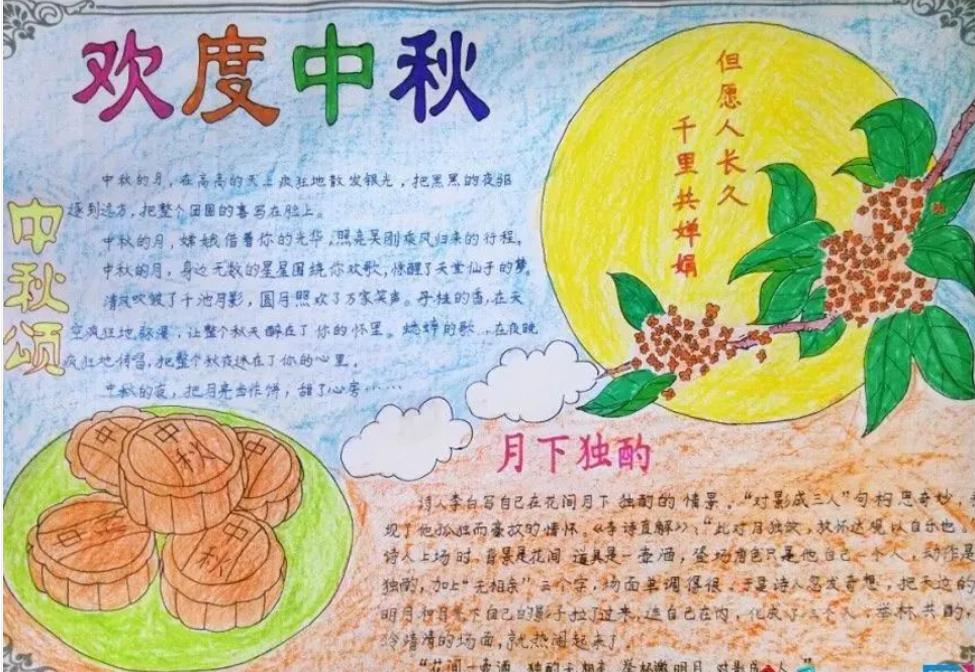 欢度中秋
但愿人长久
千里共婵娟
中秋颂
中秋的月，在高高的天上疯狂地散发银光，把黑黑的夜驱
逐到远方，把整个团圆的喜写在脸上。
中秋的月，嫦娥借着你的光华，照亮吴刚乘风归来的行程。
中秋的月，身边无数的星星围绕你欢歌，惊醒了天堂仙子的梦。
清风吹皱了千池月影，圆月照欢了万家笑声。丹桂的香，在天
空疯狂地弥漫，让整个秋天醉在了你的怀里。蟋蟀的歌，在夜晚
疯狂地传唱，把整个秋夜迷在了你的心里。
中秋的夜，把月亮当作饼，甜了心房……
中
秋
中
中秋
中
秋
月下独酌
诗人李白写自己在花间月下独酌的情景。“对影成三人”句构思奇妙，
现了他孤独而豪放的情怀。《李诗直解》：“此对月独饮，放怀达观以自乐也。
诗人上场时，背景是花间，道具是一壶酒，登场角色只是他自己一个人，动作是
独酌，加上“无相亲”三个字，场面单调得很。于是诗人忽发奇想，把天边的
明月和月光下自己的影子拉了过来，连自己在内，化成了三个人，举杯共酌，
冷清清的场面，就热闹起来了
“花间一壶酒，独酌无相亲。举杯邀明月，对影成三人。”